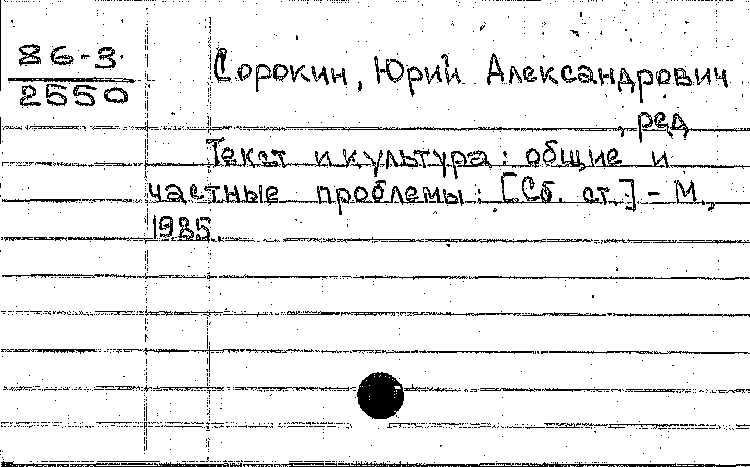 86-3
2550
Сорокин, Юрий Александрович
, ред
Текст и культура: общие и
частные проблемы: [Сб. ст.] - М.,
1985.